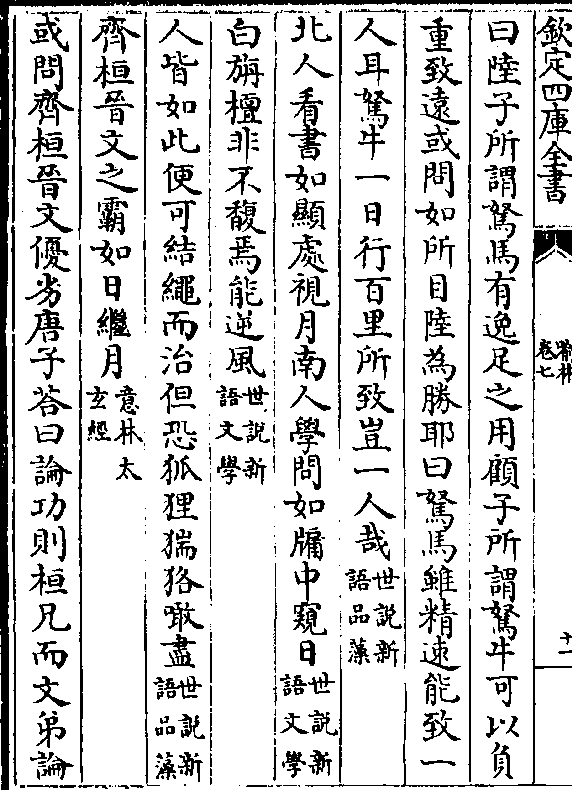 欽定四庫全書
喻林
卷七
十一
曰陸子所謂駑馬有逸足之用顧子所謂駑牛可以負
重致遠或問如所目陸為勝耶曰駑馬雖精速能致一
人耳駑牛一日行百里所致豈一人哉世說新語品藻
北人看書如顯處視月南人學問如牖中窺日世說新語文學
白旃檀非不馥焉能逆風世說新語文學
人皆如此便可結繩而治但恐狐狸猯狢噉盡世說新語品藻
齊桓晉文之霸如日繼月意林太玄經
或問齊桓晉文優劣唐子荅曰論功則桓兄而文弟論